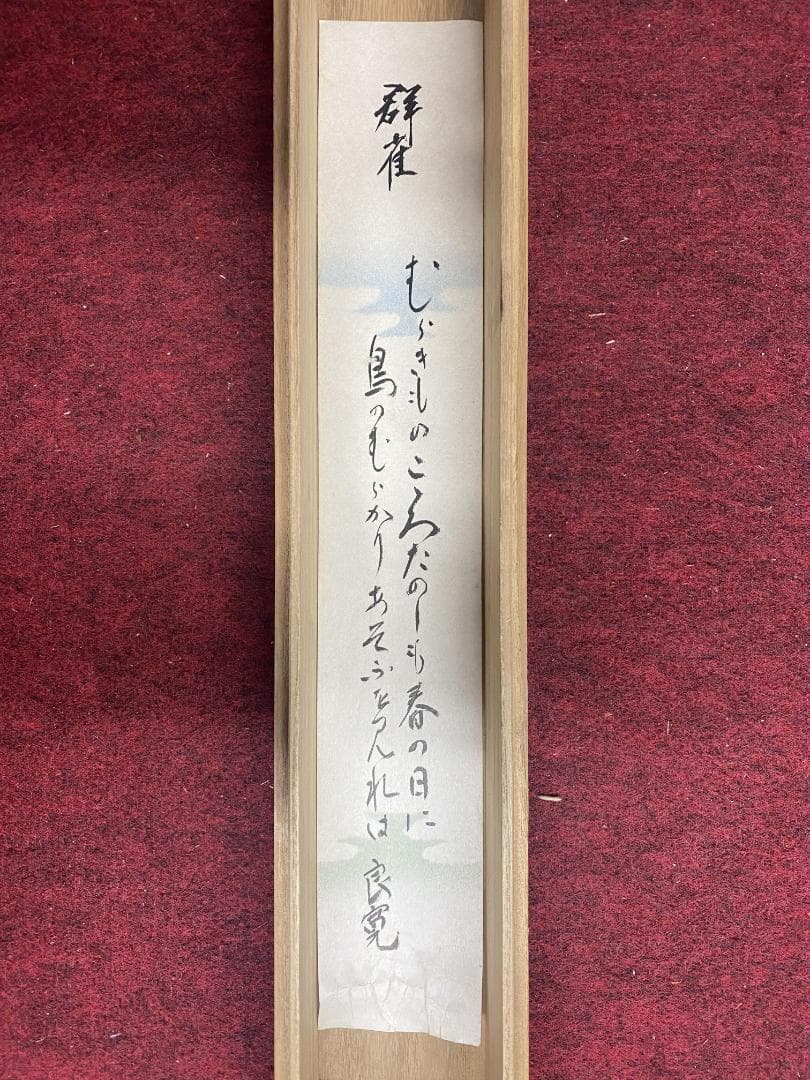 群雀
むらきものこゝろたのしも春の日に
鳥のむらかりあそふを見れは
良寛